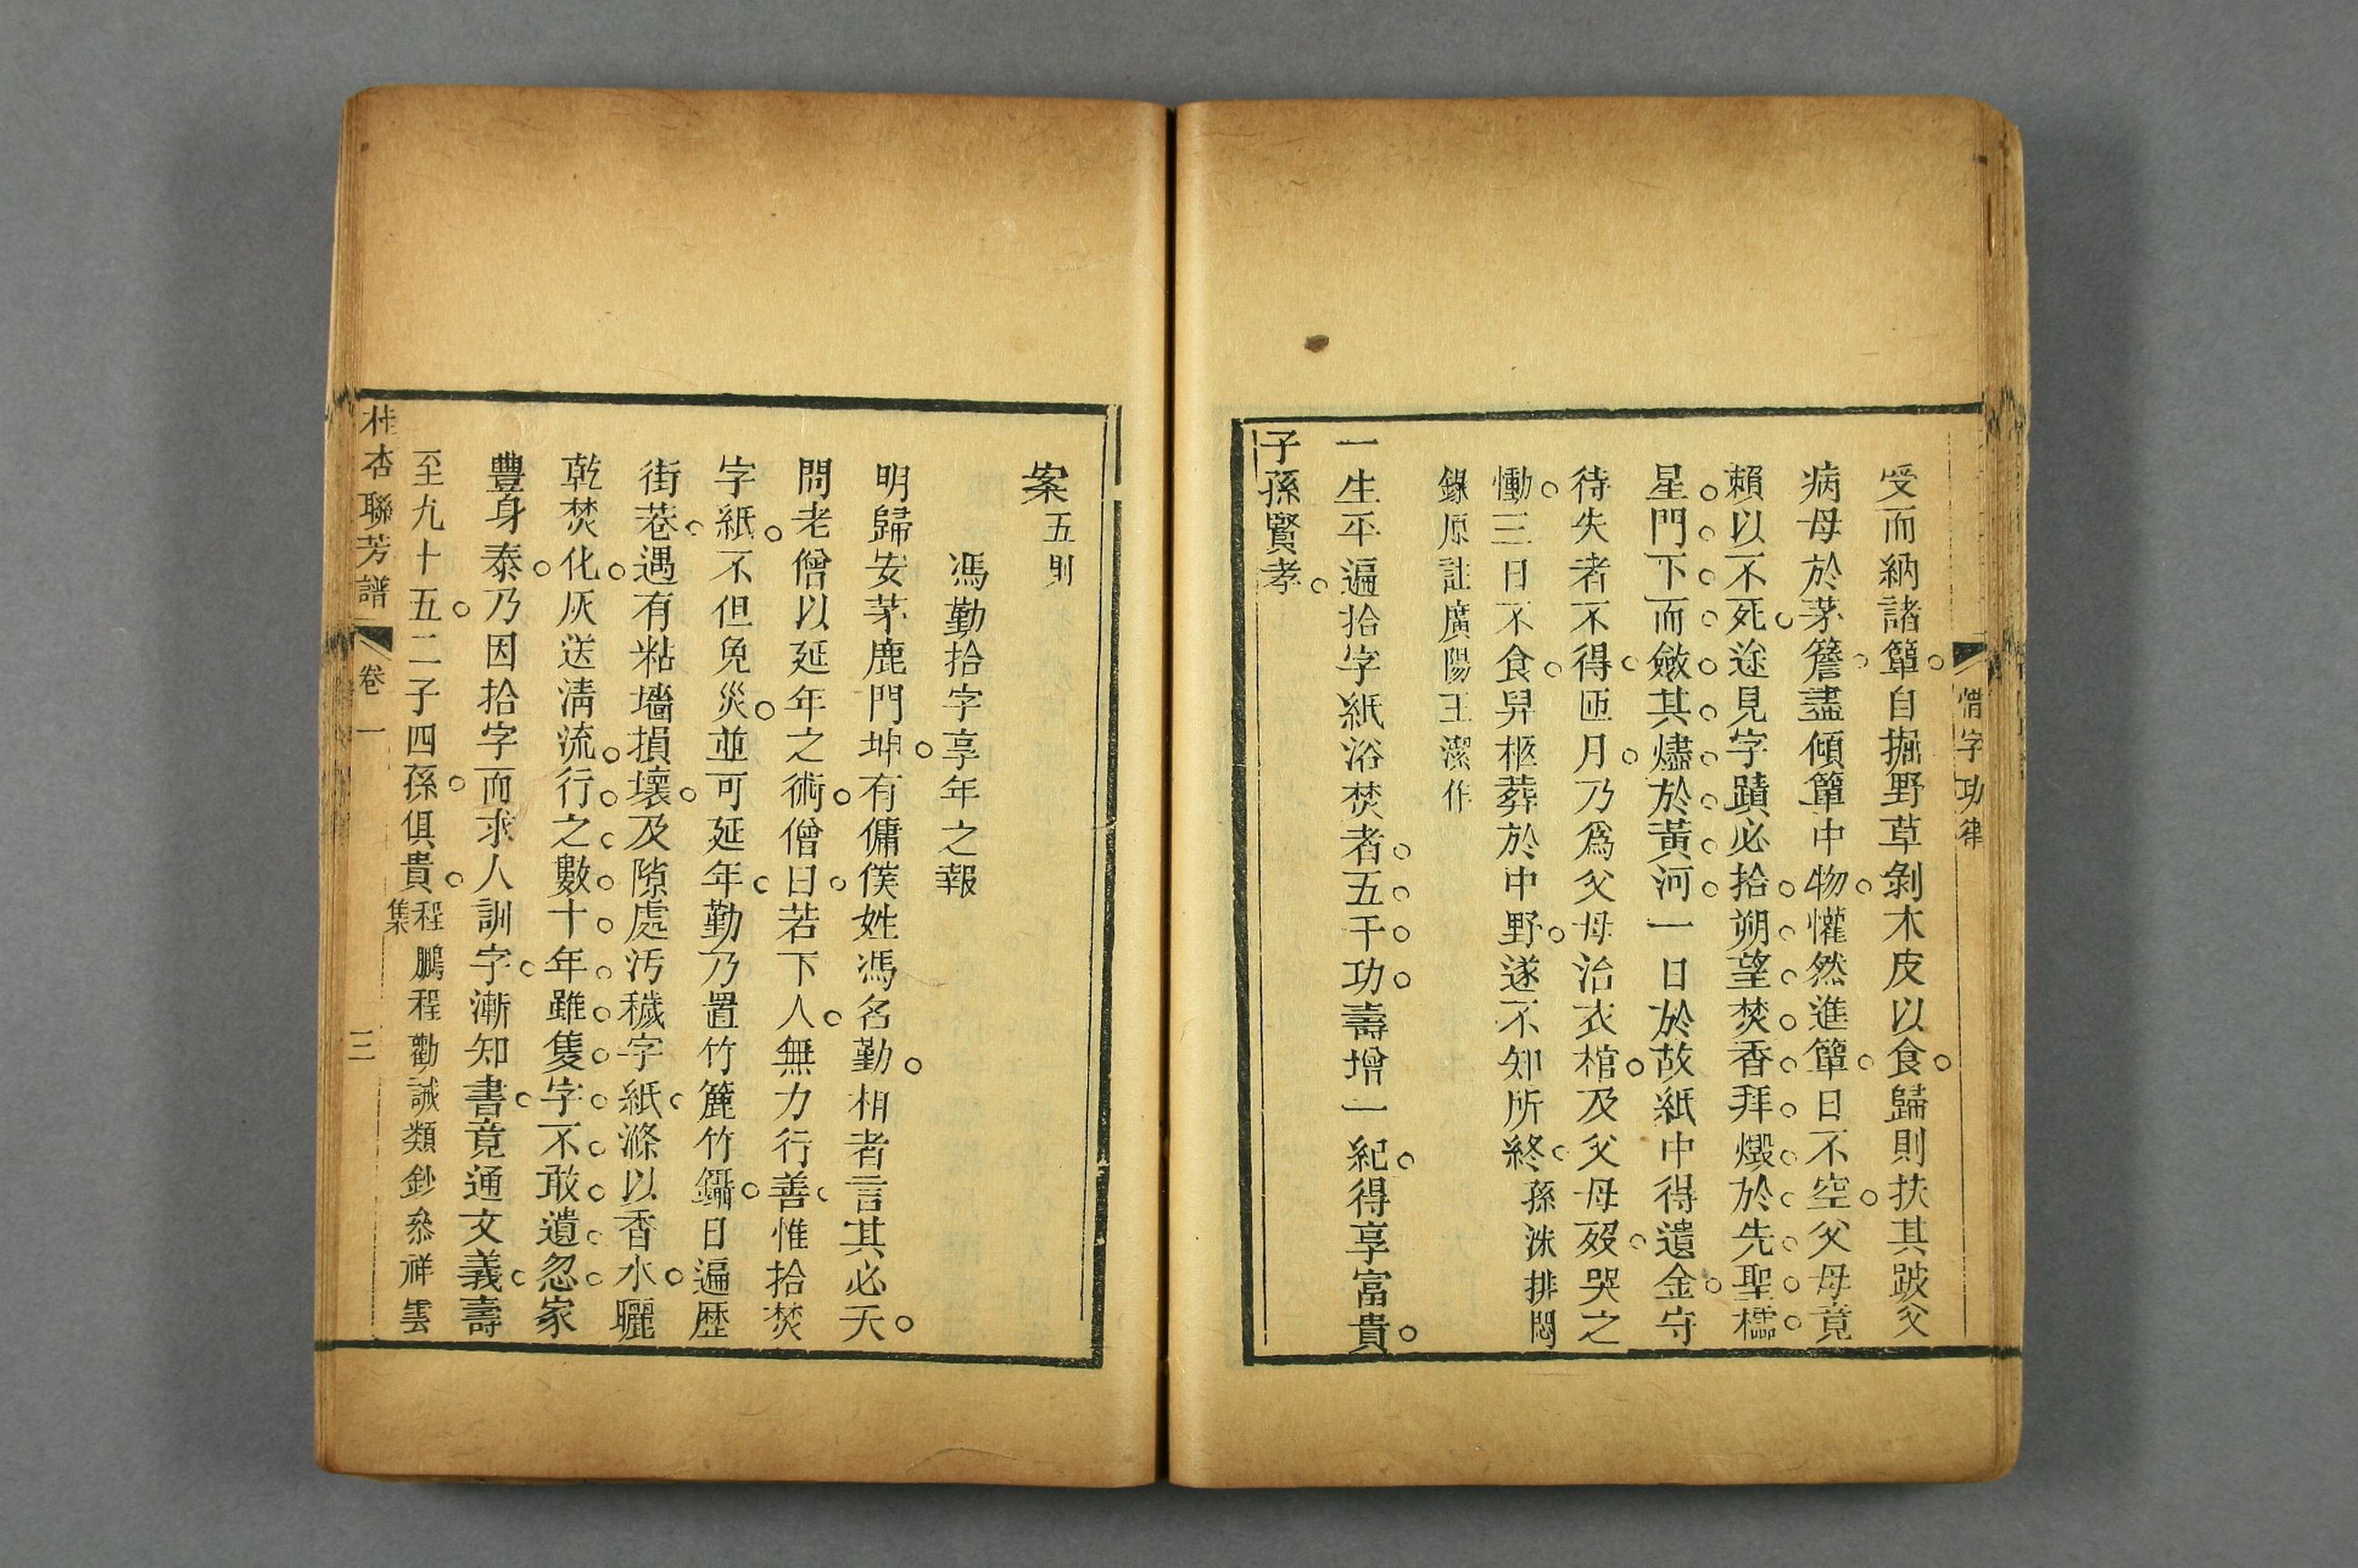 惜字功律
受而納諸簞自掘野草剝木皮以食歸則扶其跛父
病母於茅簷盡傾簞中物懽然進簞日不空父母竟
賴以不死途見字蹟必拾朔望焚香拜燬於先聖櫺
星門下而斂其燼於黃河一日於故紙中得遺金守
待失者不得匝月乃爲父母治衣棺及父母歿哭之
慟三日不食舁柩葬於中野遂不知所終孫洙排悶
錄原註廣陽王潔作
一生平遍拾字紙浴焚者五千功壽增一紀得享富貴
子孫賢孝
案五則
馮勤拾字享年之報
明歸安茅鹿門坤有傭僕姓馮名勤相者言其必夭
問老僧以延年之術僧曰若下人無力行善惟拾焚
字紙不但免災並可延年勤乃置竹簏竹鑷日遍歷
街巷遇有粘墻損壞及隙處汚穢字紙滌以香水曬
乾焚化灰送淸流行之數十年雖隻字不敢遺忽家
豐身泰乃因拾字而求人訓字漸知書竟通文義壽
至九十五二子四孫俱貴程鵬程勸誡類鈔叅祥雲
集
桂杏聯芳譜 卷一 三